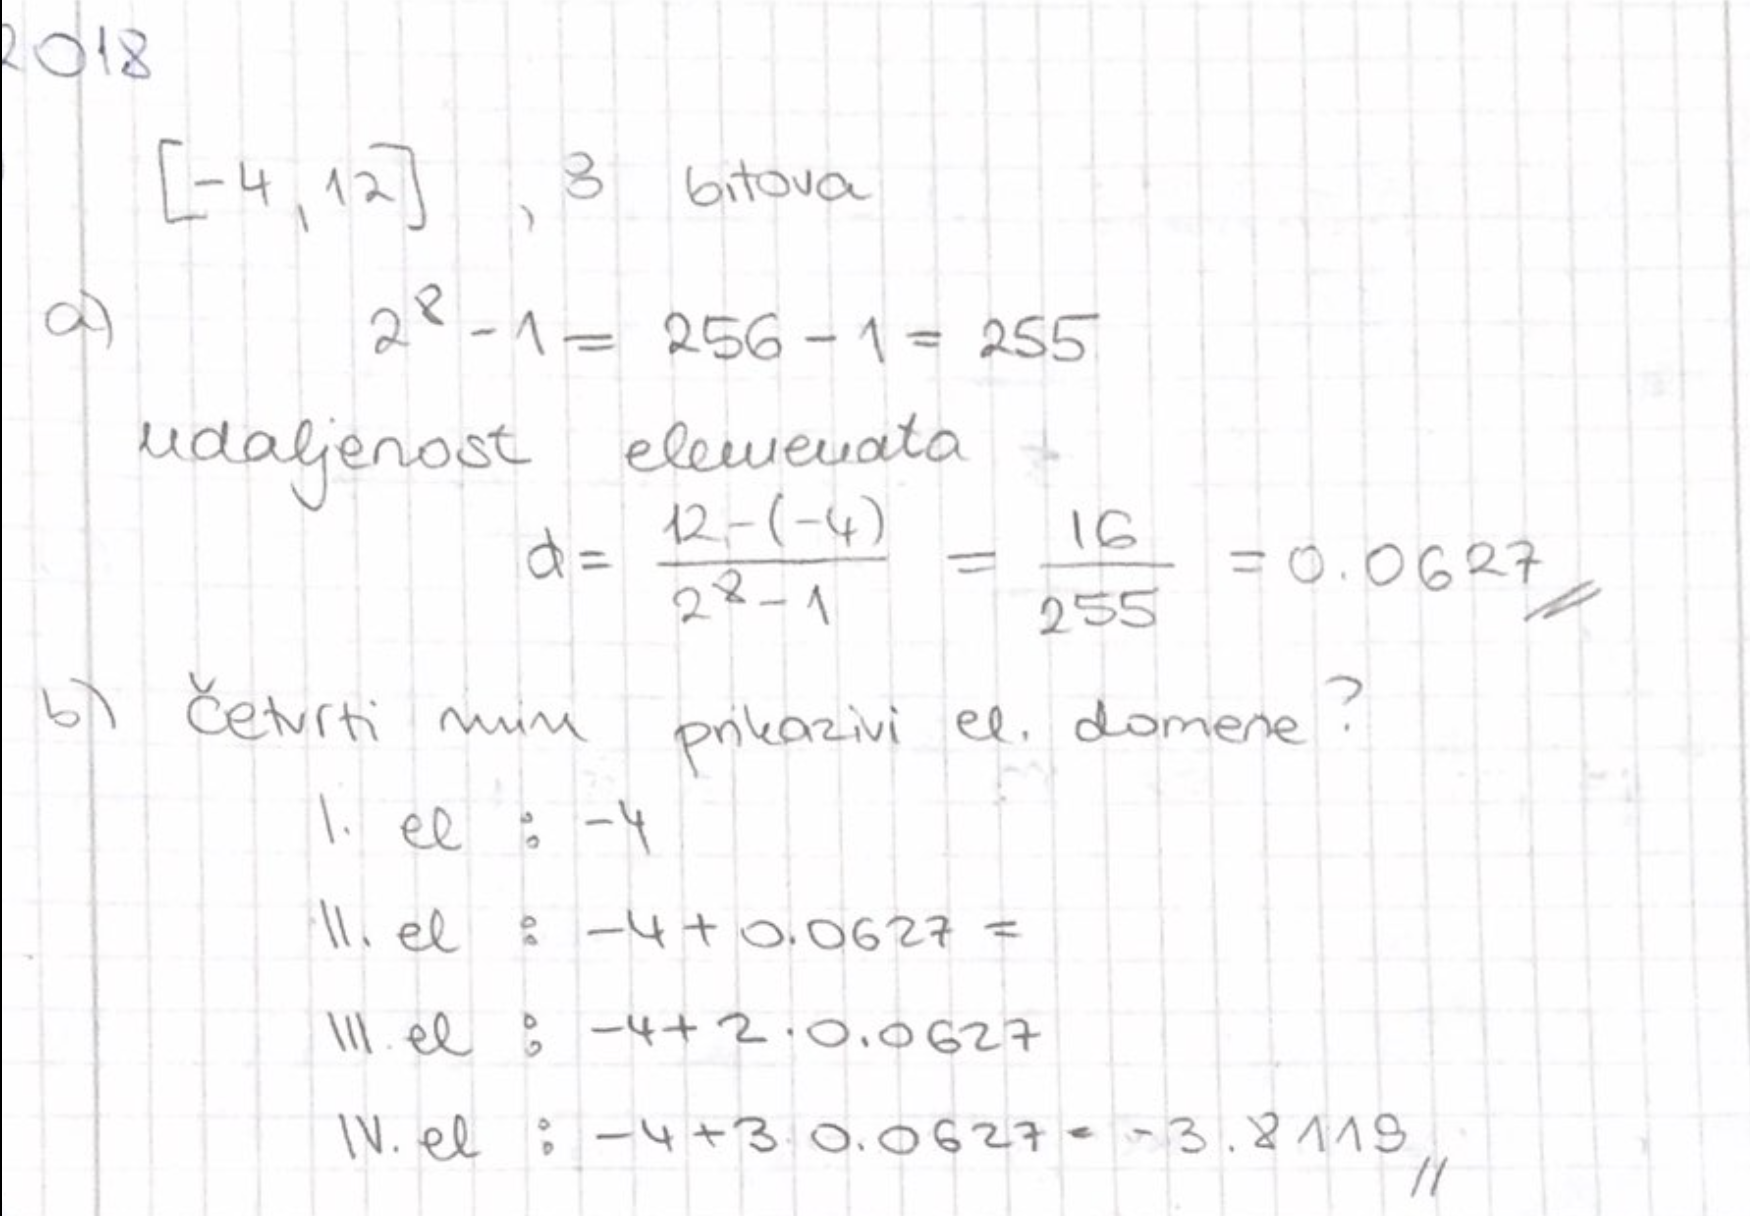 2018
[-4, 12] , 8 bitova
a) 2^8 - 1 = 256 - 1 = 255
udaljenost elemenata
d = \frac{12-(-4)}{2^8-1} = \frac{16}{255} = 0.0627
b) Četvrti min prikazivi el. domene?
I. el : -4
II. el : -4 + 0.0627 =
III. el : -4 + 2 · 0.0627
IV. el : -4 + 3 · 0.0627 = -3.8119